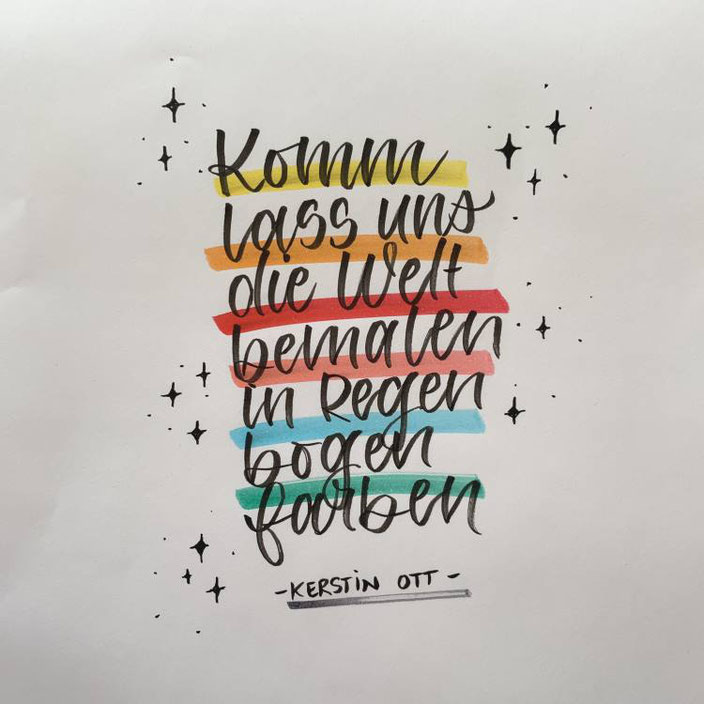 Komm
lass uns
die Welt
bemalen
in Regen
bogen
farben
- KERSTiN OTT -